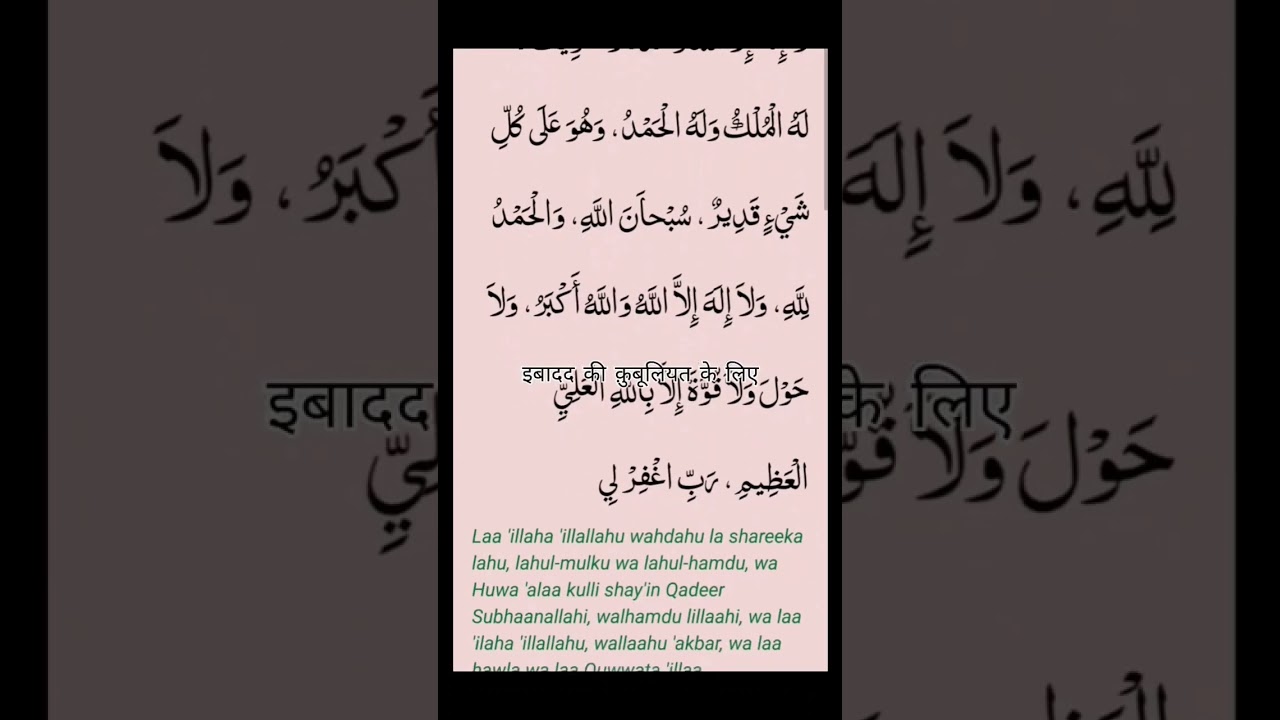 لَهُ الْمُلْكُ وَلَهُ الْحَمْدُ، وَهُوَ عَلَى كُلِّ
شَيْءٍ قَدِيرٌ، سُبْحاَنَ اللَّهِ، وَالْحَمْدُ
لِلَّهِ، وَلاَ إِلَهَ إِلاَّ اللَّهُ وَاللَّهُ أَكْبَرُ، وَلاَ
इबादद की क़ुबूलियत के लिए
حَوْلَ وَلاَ قُوَّةَ إِلاَّ بِاللَّهِ الْعَلِيِّ
الْعَظِيمِ، رَبِّ اغْفِرْ لِي
Laa 'illaha 'illallahu wahdahu la shareeka
lahu, lahul-mulku wa lahul-hamdu, wa
Huwa 'alaa kulli shay'in Qadeer
Subhaanallahi, walhamdu lillaahi, wa laa
'ilaha 'illallahu, wallaahu 'akbar, wa laa
hawla wa laa Quwwata 'illaa